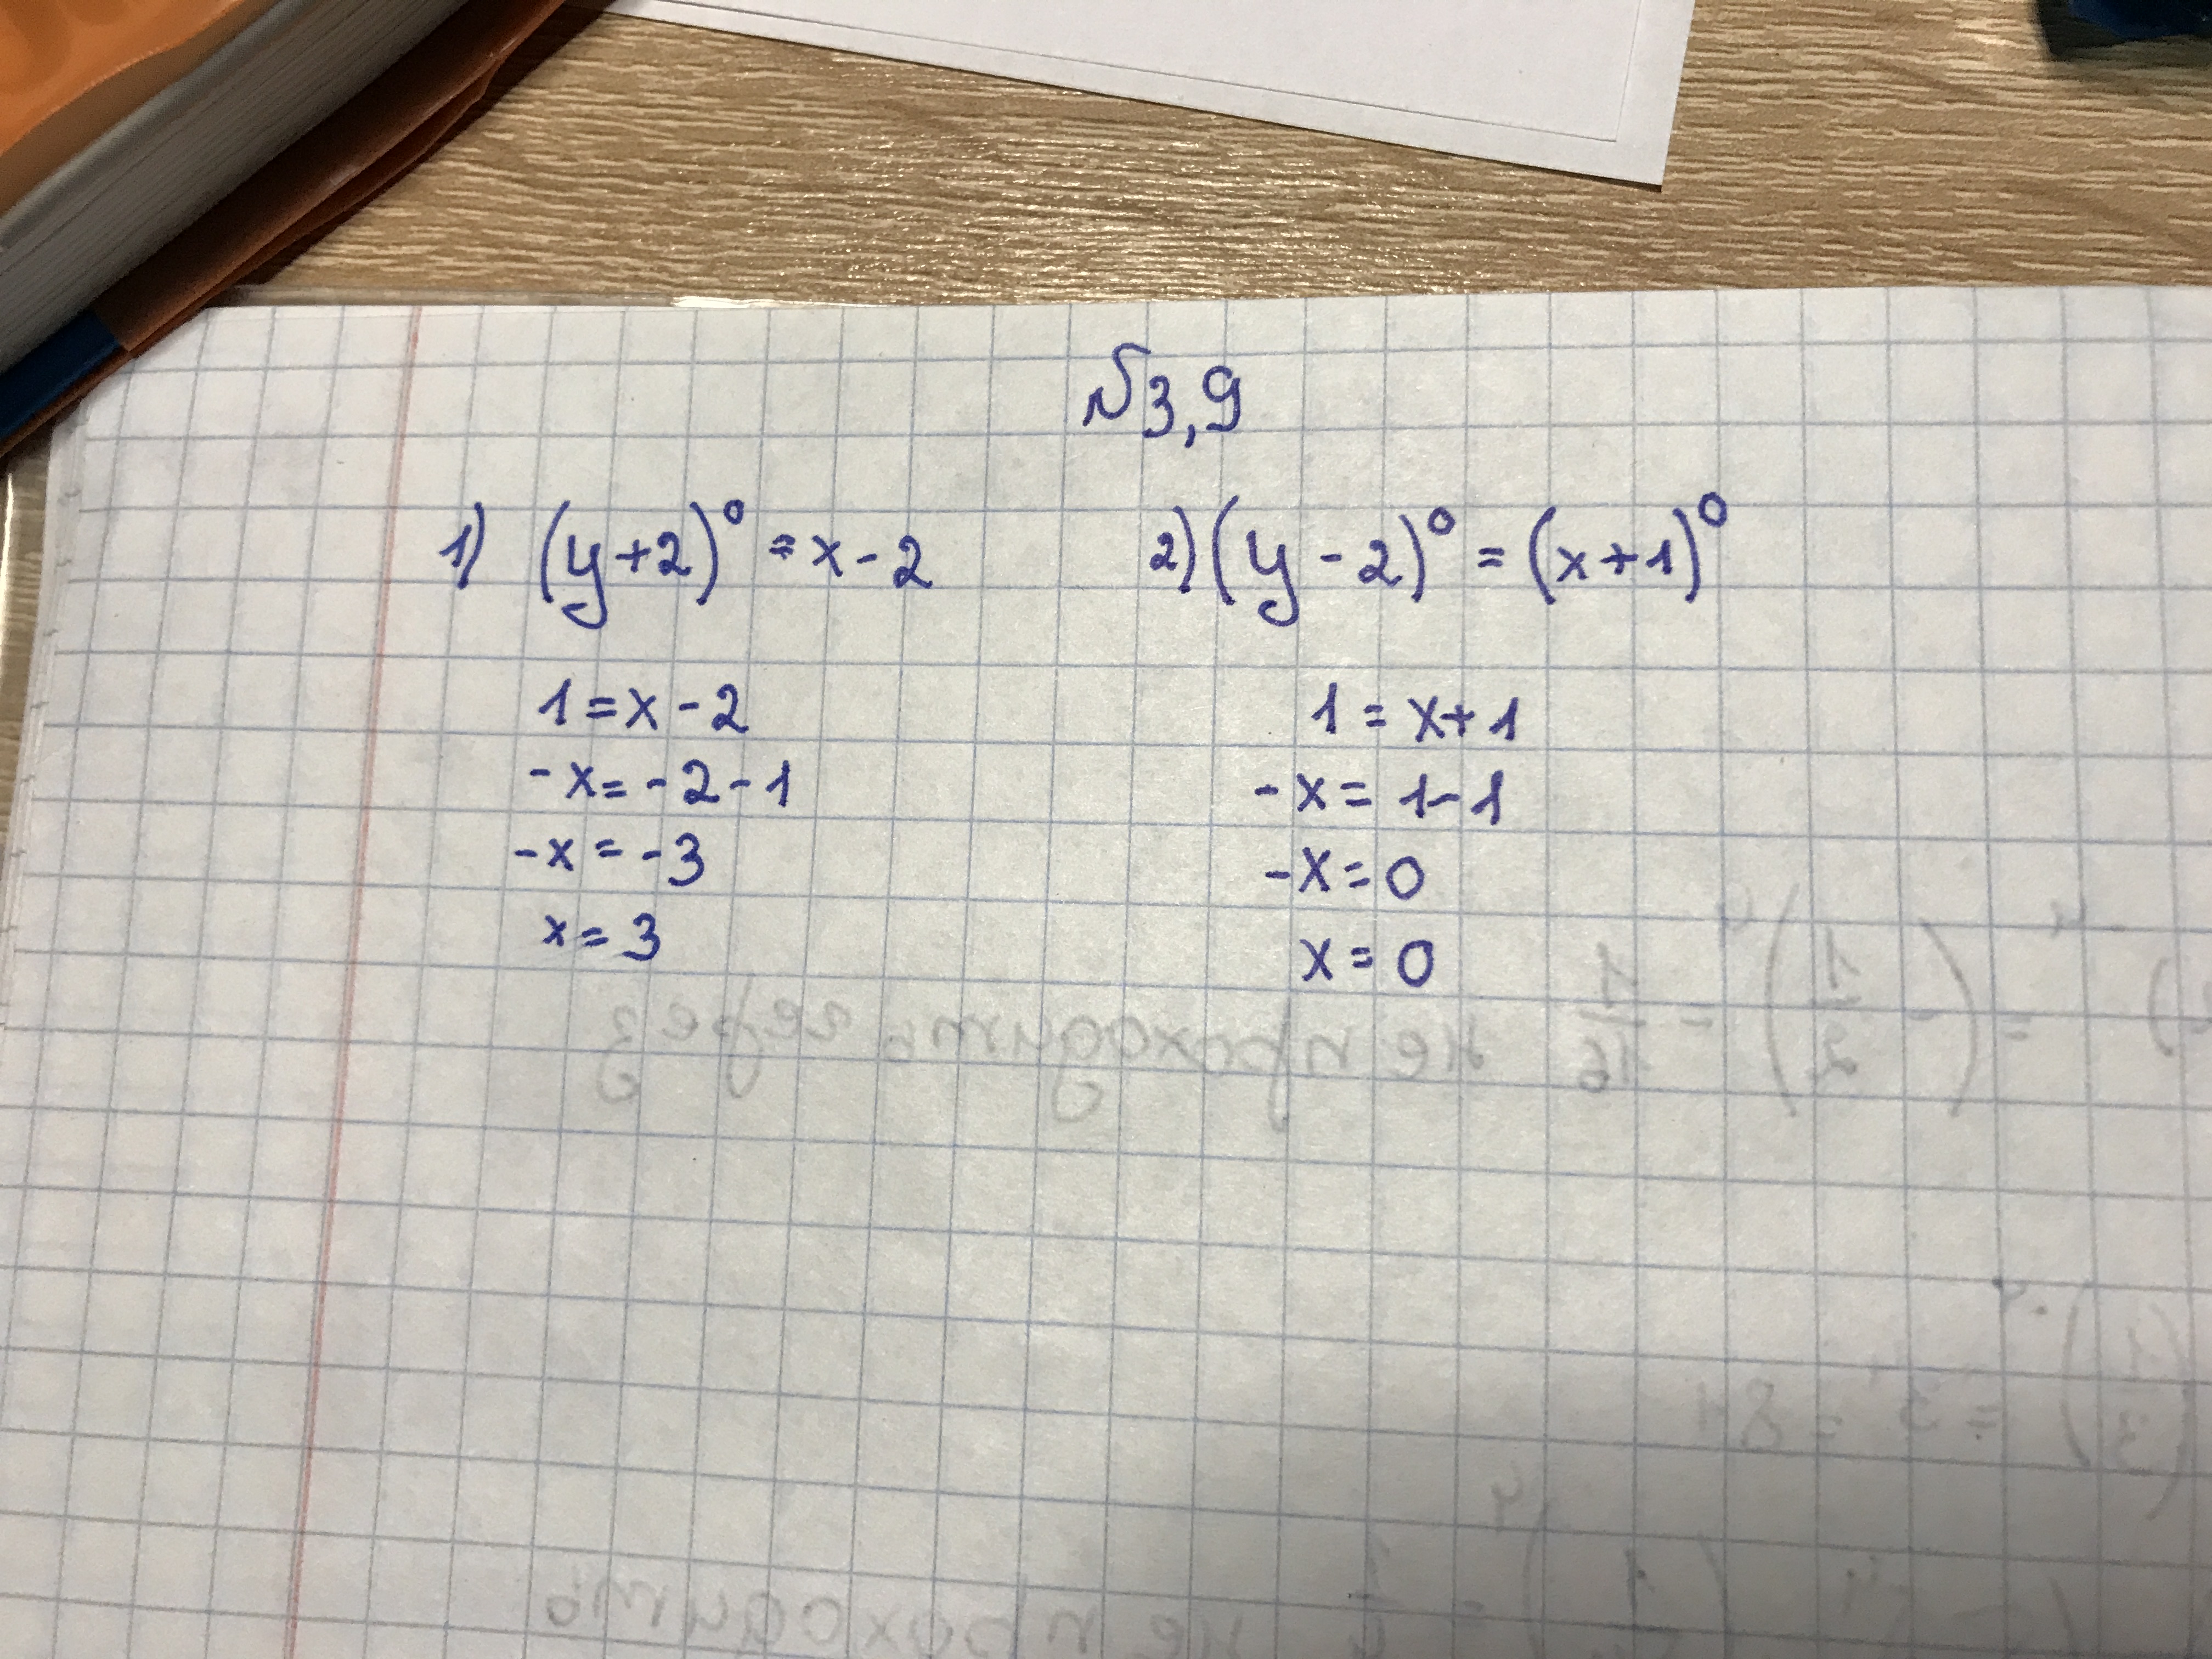 №3,9
1) (y+2)⁰ = x-2
1 = x-2
-x = -2-1
-x = -3
x = 3
2) (y-2)⁰ = (x+1)⁰
1 = x+1
-x = 1-1
-x = 0
x = 0